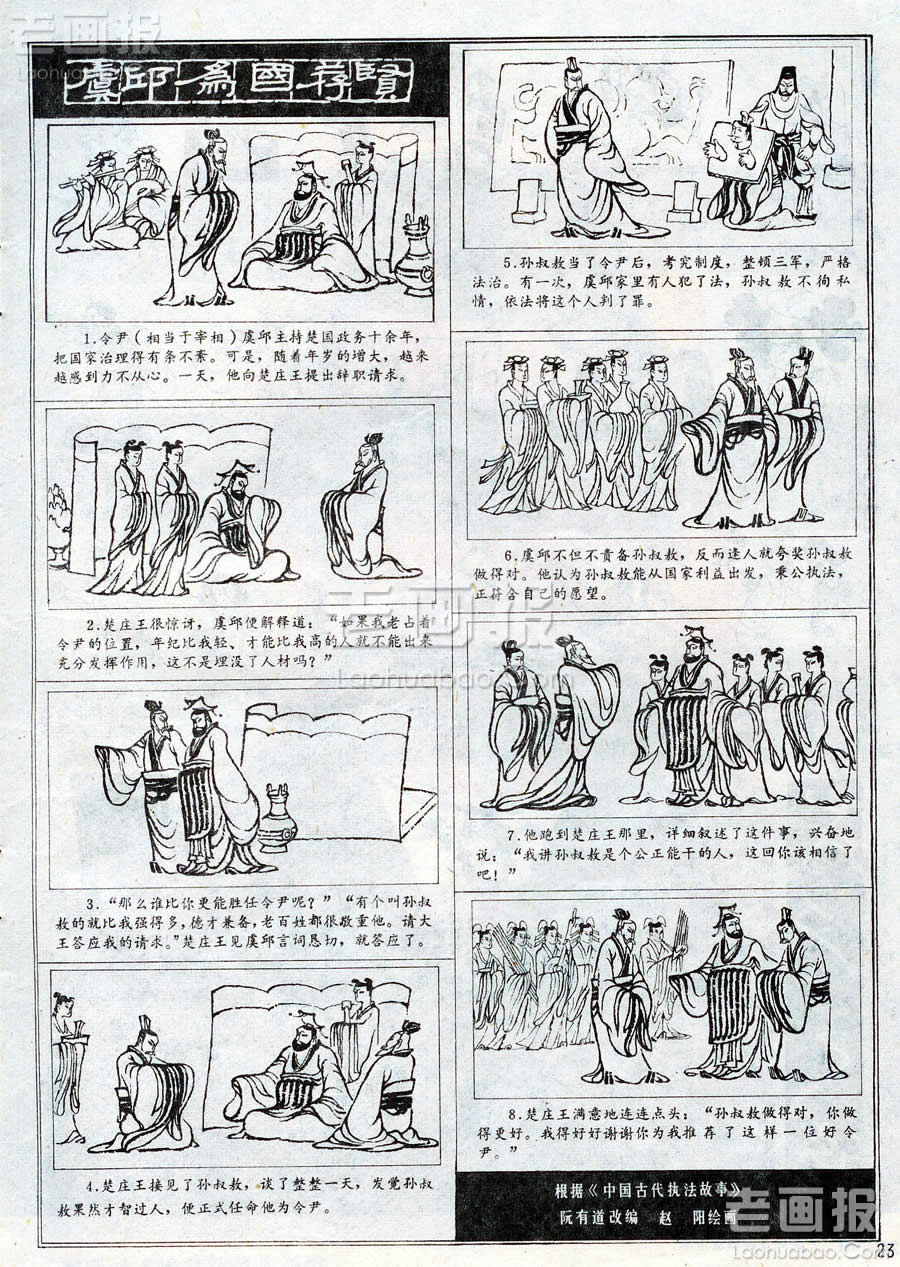 老画报
Laohuabao.Com
虞邱为國荐賢
1.令尹(相当于宰相)虞邱主持楚国政务十余年,
把国家治理得有条不紊。可是,随着年岁的增大,越来
越感到力不从心。一天,他向楚庄王提出辞职请求。
2.楚庄王很惊讶,虞邱便解释道:“如果我老占着
令尹的位置,年纪比我轻、才能比我高的人就不能出来
充分发挥作用,这不是埋没了人材吗?”
3.“那么谁比你更能胜任令尹呢?”“有个叫孙叔
敖的就比我强得多,德才兼备,老百姓都很敬重他。请大
王答应我的请求。”楚庄王见虞邱言词恳切,就答应了。
4.楚庄王接见了孙叔敖,谈了整整一天,发觉孙叔
敖果然才智过人,便正式任命他为令尹。
5.孙叔敖当了令尹后,考究制度,整顿三军,严格
法治。有一次,虞邱家里有人犯了法,孙叔敖不徇私
情,依法将这个人判了罪。
6.虞邱不但不责备孙叔敖,反而逢人就夸奖孙叔敖
做得对。他认为孙叔敖能从国家利益出发,秉公执法,
正符合自己的愿望。
老画报
Laohuabao.Com
7.他跑到楚庄王那里,详细叙述了这件事,兴奋地
说:“我讲孙叔敖是个公正能干的人,这回你该相信了
吧!”
8.楚庄王满意地连连点头:“孙叔敖做得对,你做
得更好。我得好好谢谢你为我推荐了这样一位好令
尹。”
根据《中国古代执法故事》
阮有道改编 赵 阳绘画
老画报
Laohuabao.Com
23